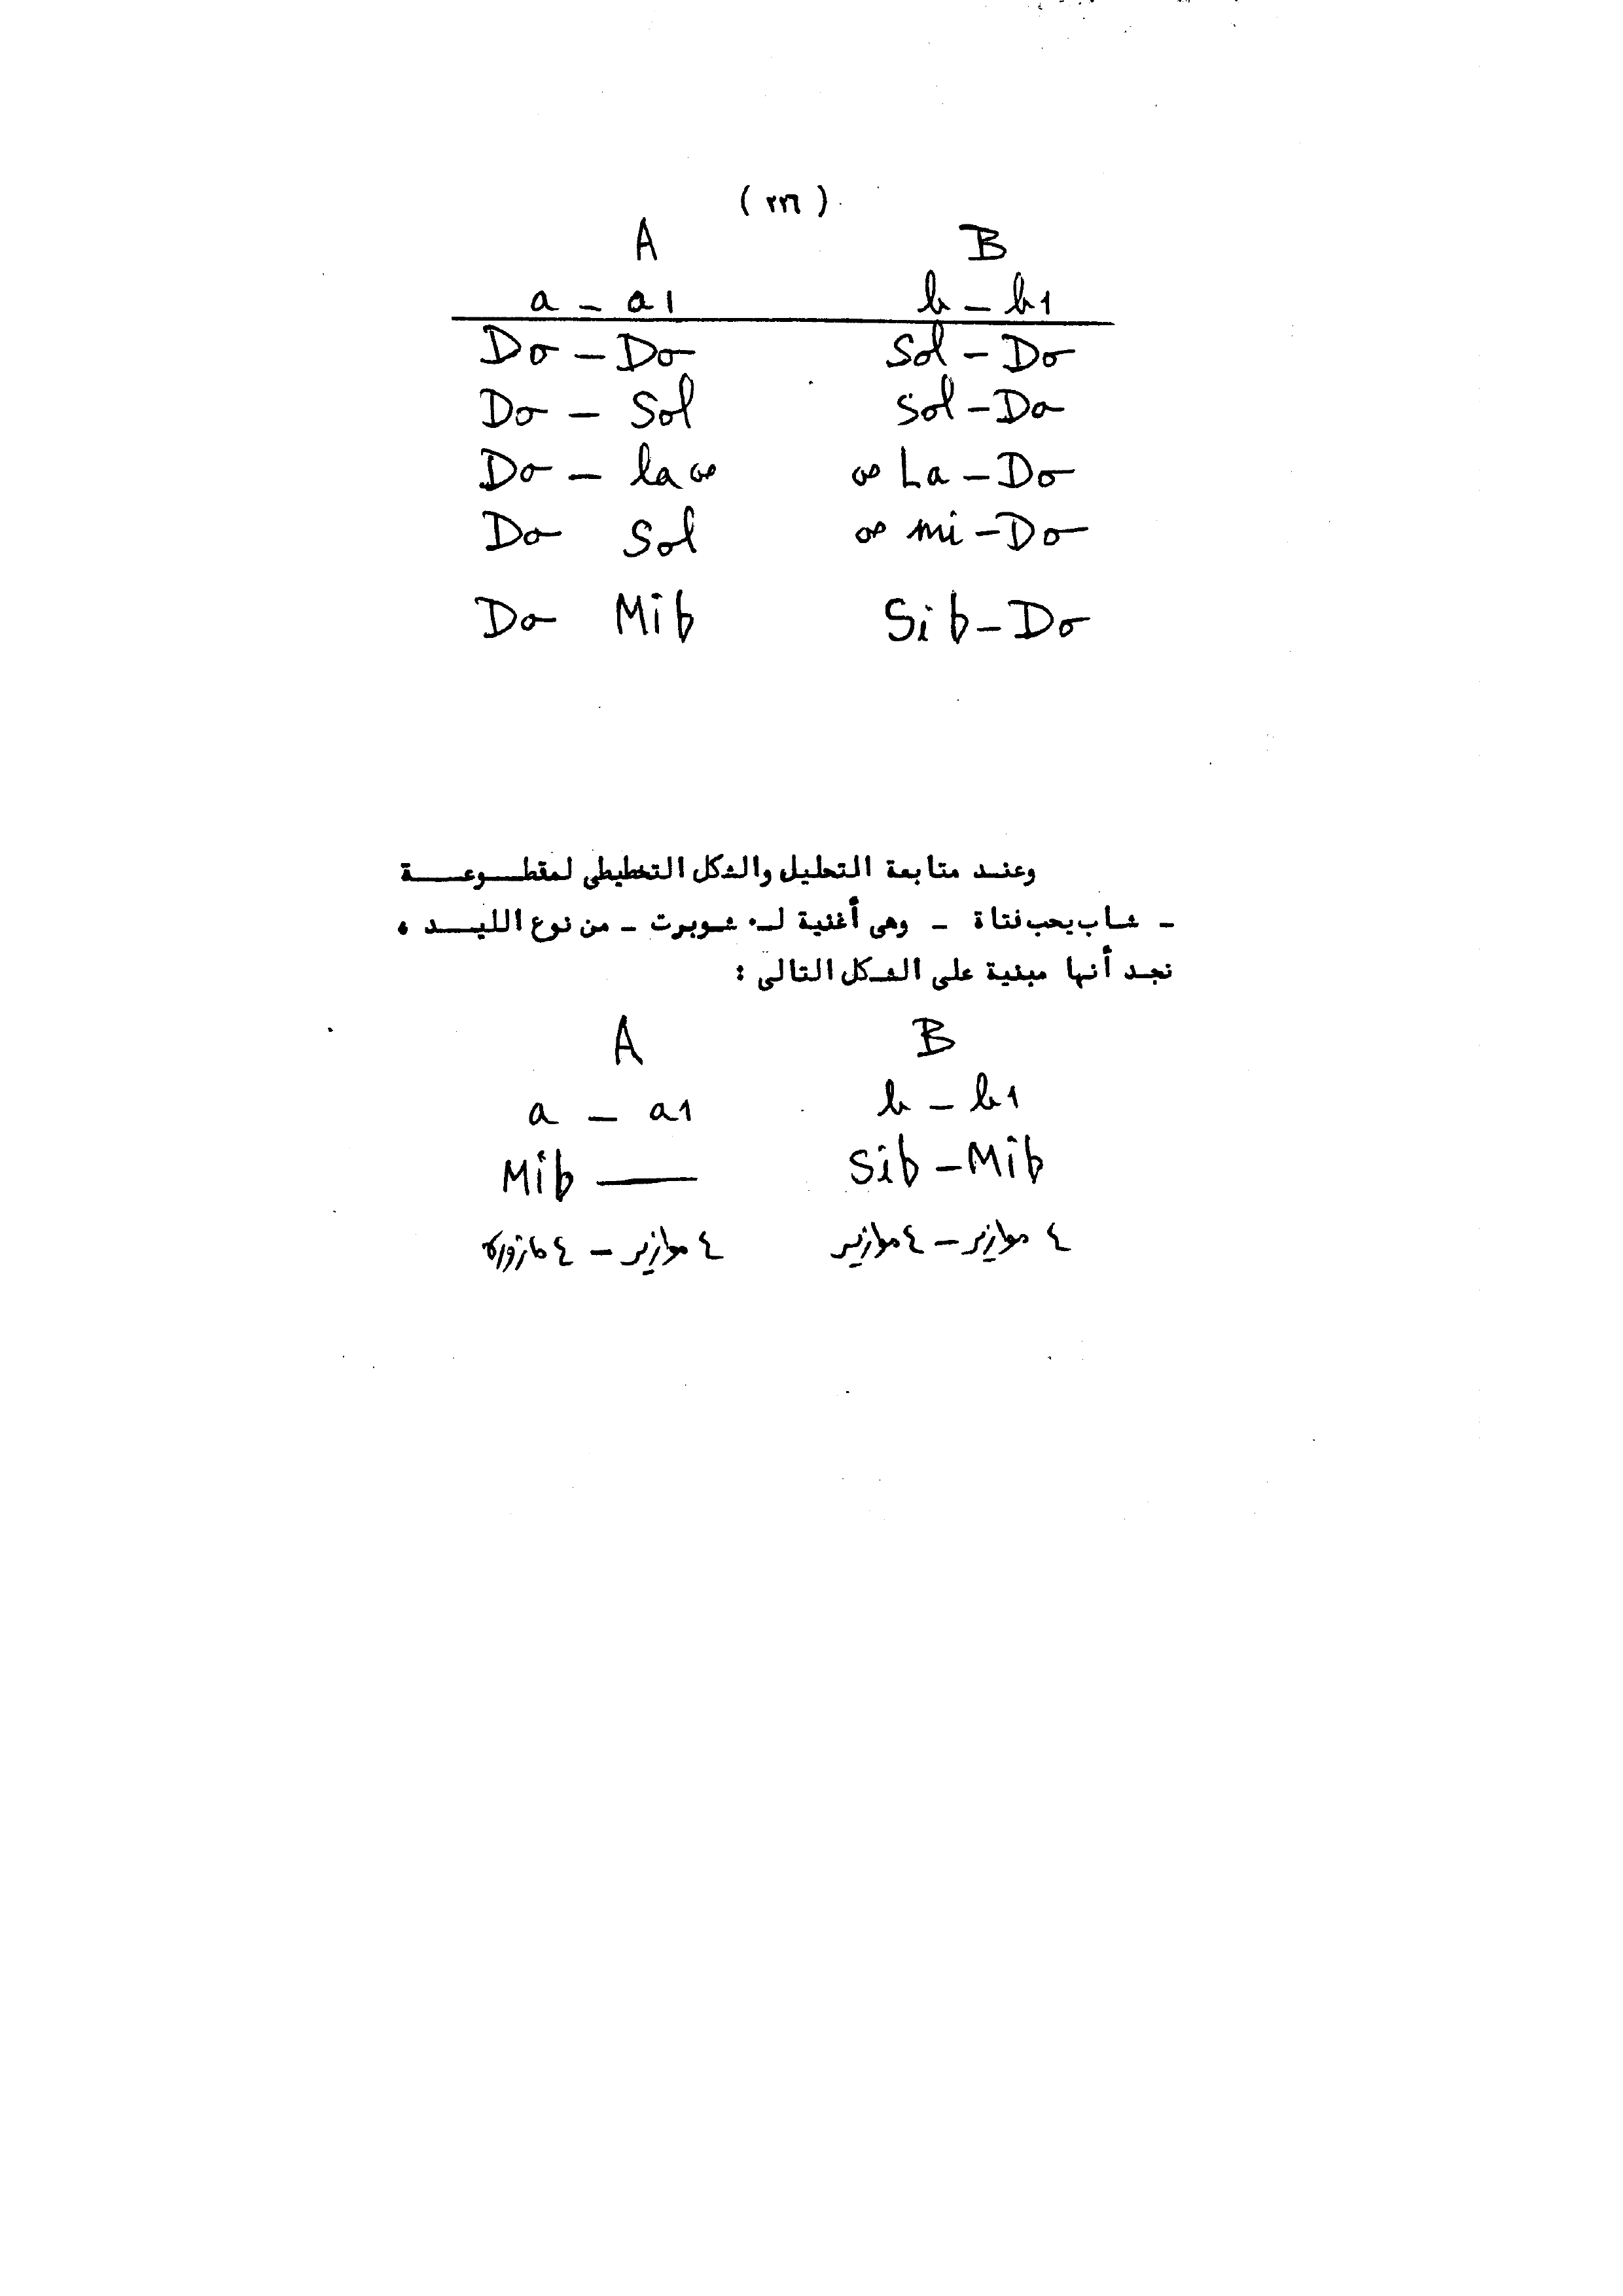 ( ٢٢٦ )
A B
a - a1 b - b1
Do - Do Sol - Do
Do - Sol Sol - Do
Do - la ∞ ∞ La - Do
Do Sol ∞ mi - Do
Do Mib Sib - Do
وعند متابعة التحليل والشكل التخطيطى لمقطوعة
- شاب يحب فتاة - وهى أغنية لـ٠ شوبرت - من نوع الليد ،
نجد أنها مبنية على الشكل التالى :
A B
a - a1 b - b1
Mib — Sib - Mib
٤ موازير - ٤ مازوره ٤ موازير - ٤ موازير